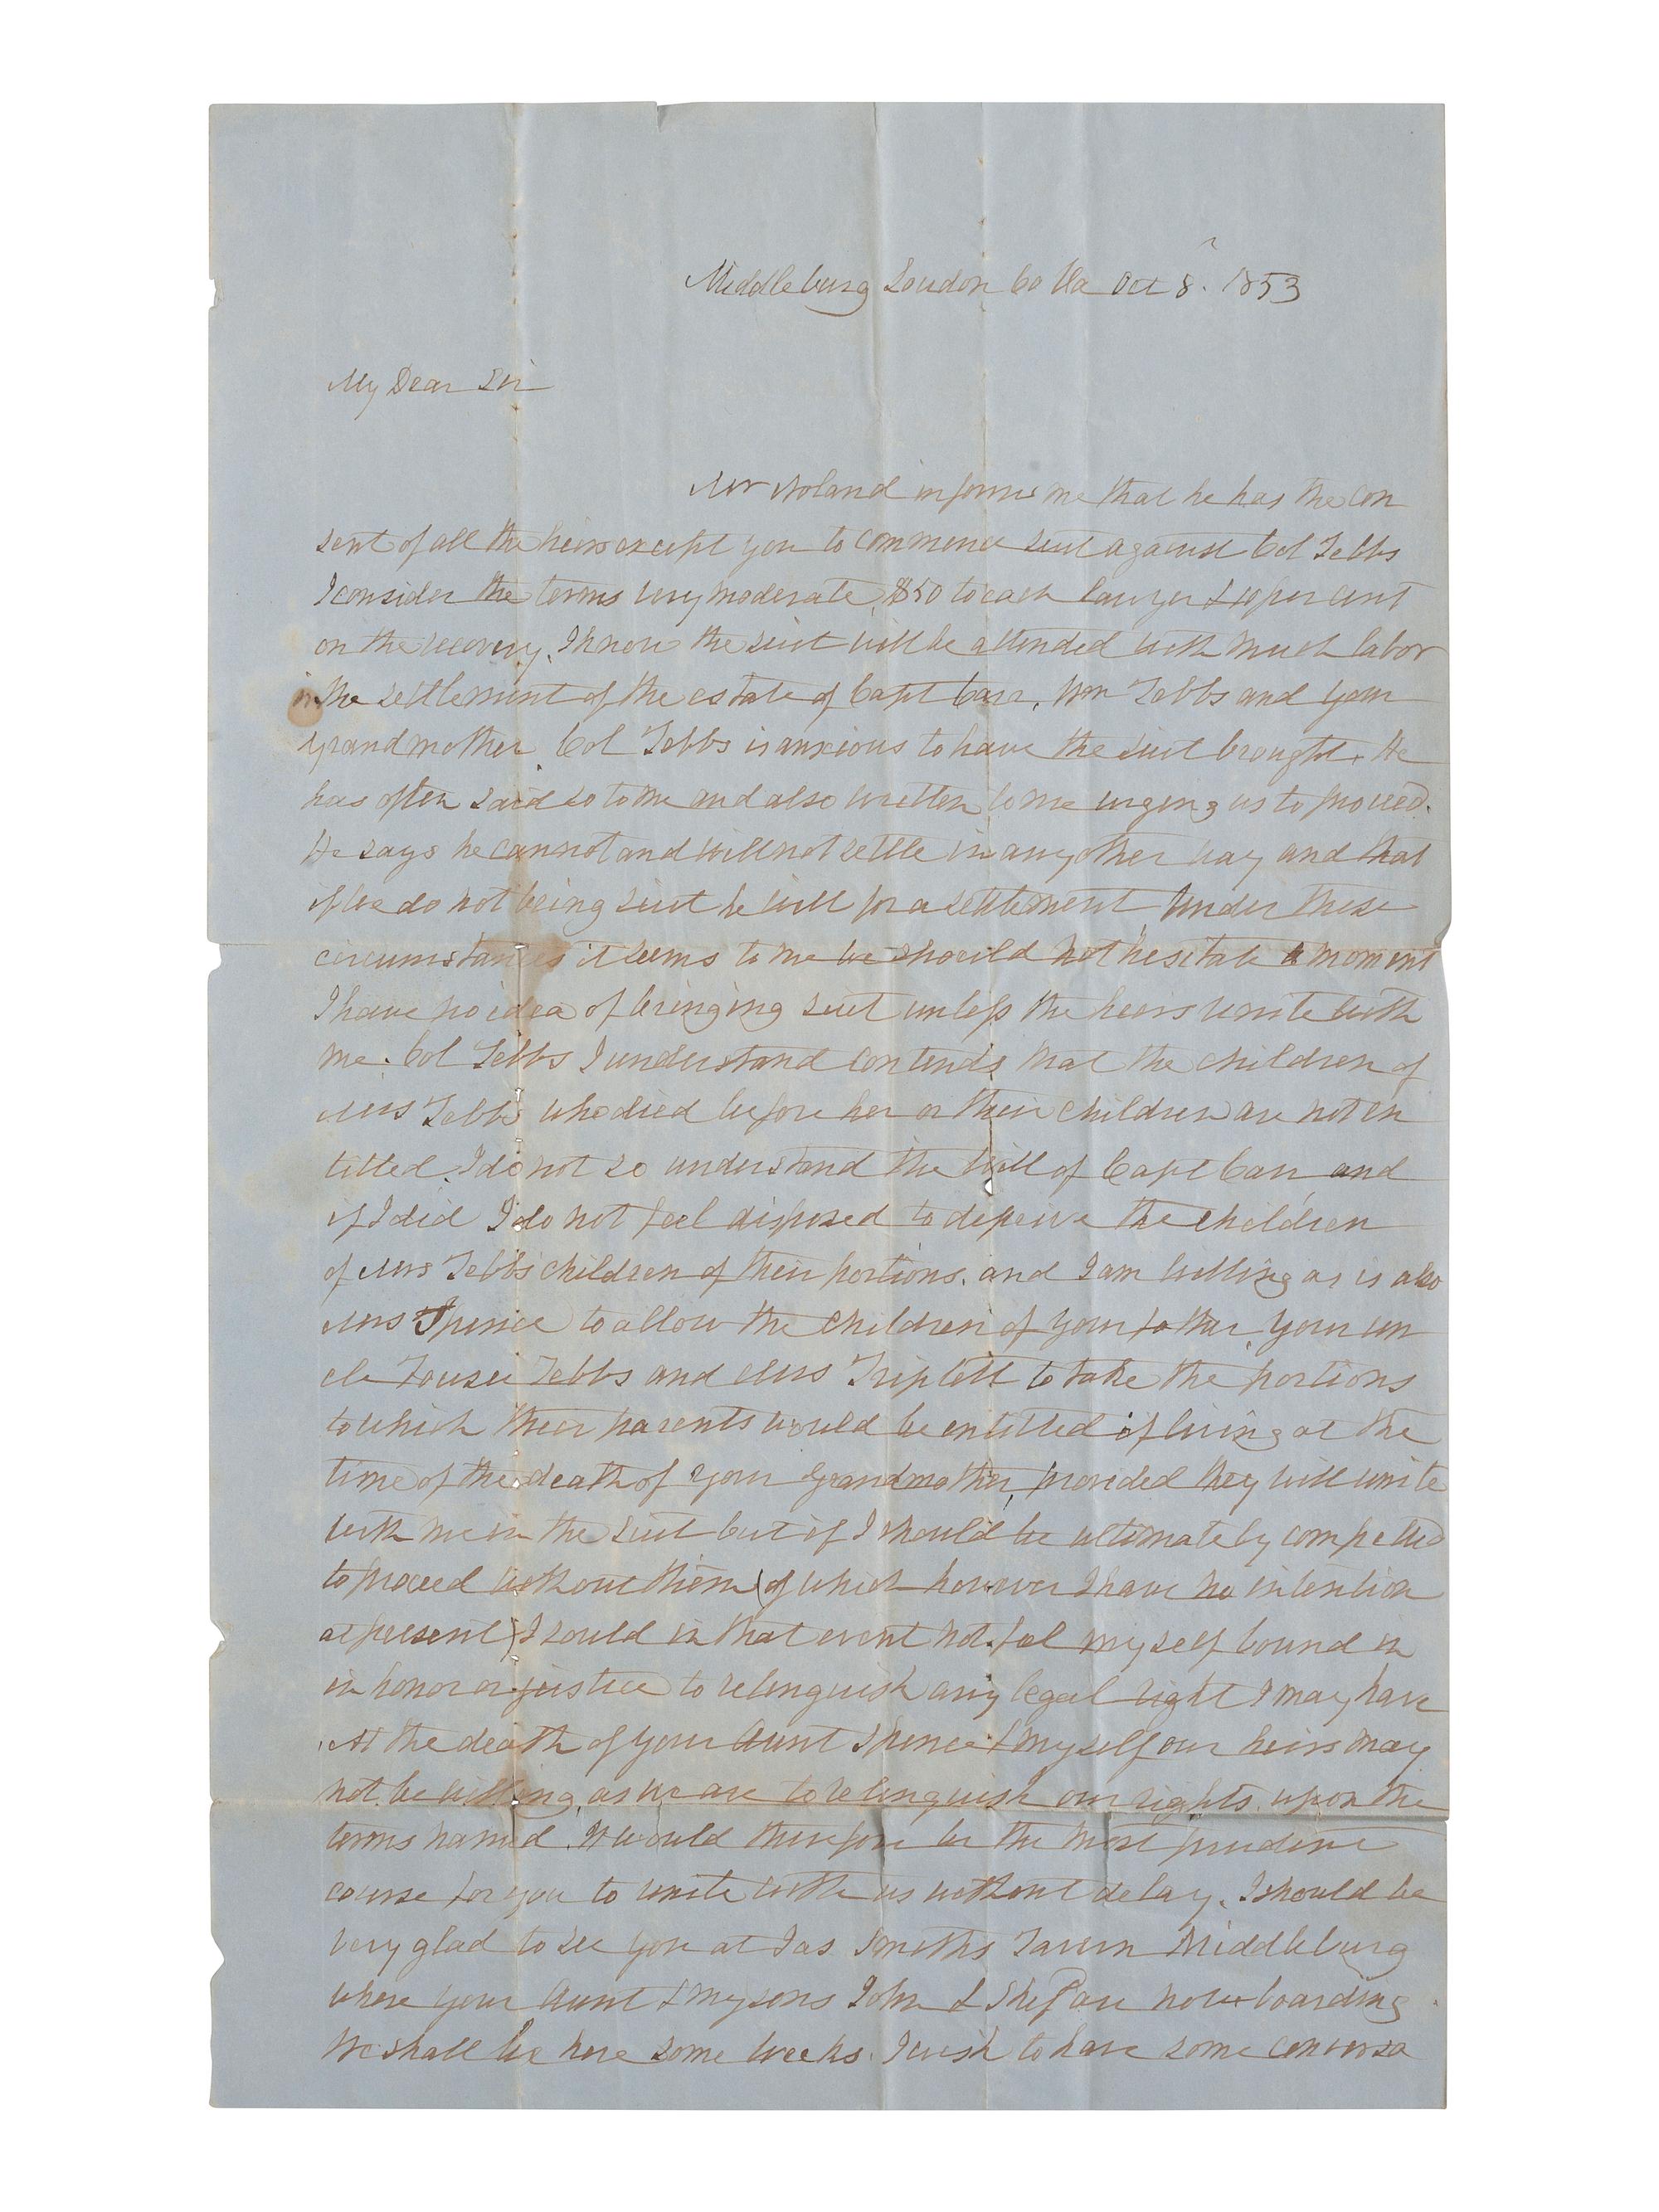 Middleburg Loudon Co Va Oct 8. 1853
My Dear Sir
Mr Noland informs me that he has the con
sent of all the heirs except you to commence suit against Col Tebbs
I consider the terms very moderate, $50 to each lawyer & 10 per cent
on the recovery. I know the suit will be attended with much labor
in the settlement of the estate of Capt Carr, Wm Tebbs and your
grandmother. Col Tebbs is anxious to have the suit brought. He
has often said so to me and also written to me urging us to proceed.
He says he cannot and will not settle in any other way and that
if we do not bring suit he will for a settlement Under these
circumstances it seems to me we should not hesitate a moment
I have no idea of bringing suit unless the heirs unite with
me. Col Tebbs I understand contends that the children of
Mrs Tebbs who died before her or their children are not en
titled. I do not so understand the will of Capt Carr and
if I did I do not feel disposed to deprive the children
of Mrs Tebbs children of their portions. and I am willing as is also
Mrs Spence to allow the children of your father, your un
cle Foushee Tebbs and Mrs Triplett to take the portions
to which their parents would be entitled if living at the
time of the death of your grandmother, provided they will unite
with me in the suit but if I should be ultimately compelled
to proceed without them (of which however I have no intention
at present) I would in that event not feel myself bound in
in honor or justice to relinquish any legal right I may have
At the death of your Aunt Spence & myself our heirs may
not be willing, as we are to relinquish our rights upon the
terms named. It would therefore be the most prudent
course for you to unite with us without delay. I should be
very glad to see you at Jas Smiths Tavern Middleburg
where your Aunt & my sons John & are now boarding
We shall be here some weeks. I wish to have some conversa